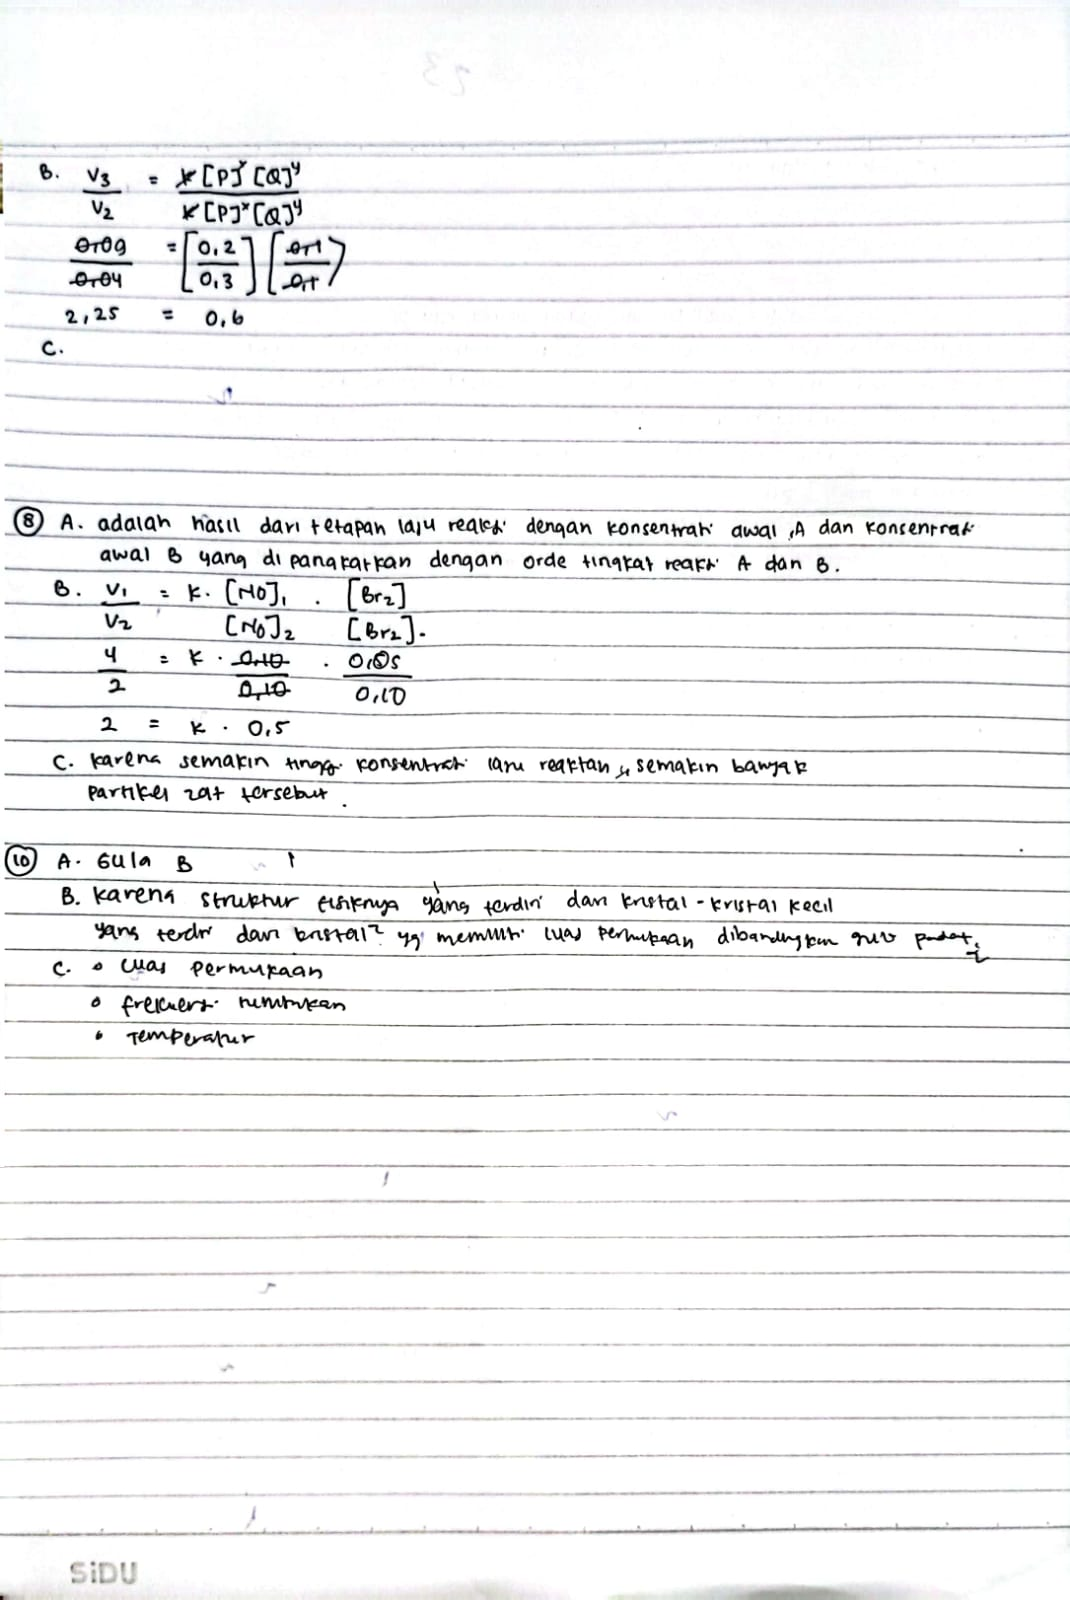 B. V3 = K [P]ˣ [Q]ʸ
V2 K [P]ˣ [Q]ʸ
0,09 = [0,2] [0,1]
0,04 [0,3] [0,1]
2,25 = 0,6
C.
⑧ A. adalah hasil dari tetapan laju reaksi dengan konsentrasi awal A dan konsentrasi
awal B yang di pangkatkan dengan orde tingkat reaksi A dan B.
B. V1 = K. [NO]1 . [Br2]
V2 [NO]2 [Br2].
4 = K . 0,10 . 0,05
2 0,10 0,10
2 = K . 0,5
C. karena semakin tinggi konsentrasi laju reaktan, semakin banyak
partikel zat tersebut.
⑩ A. Gula B
B. karena struktur fisiknya yang terdiri dari kristal - kristal kecil
yang terdiri dari kristal² yg memiliki luas permukaan dibandingkan gula padat.
C. • Luas permukaan
• frekuensi tumbukan
• Temperatur
SiDU